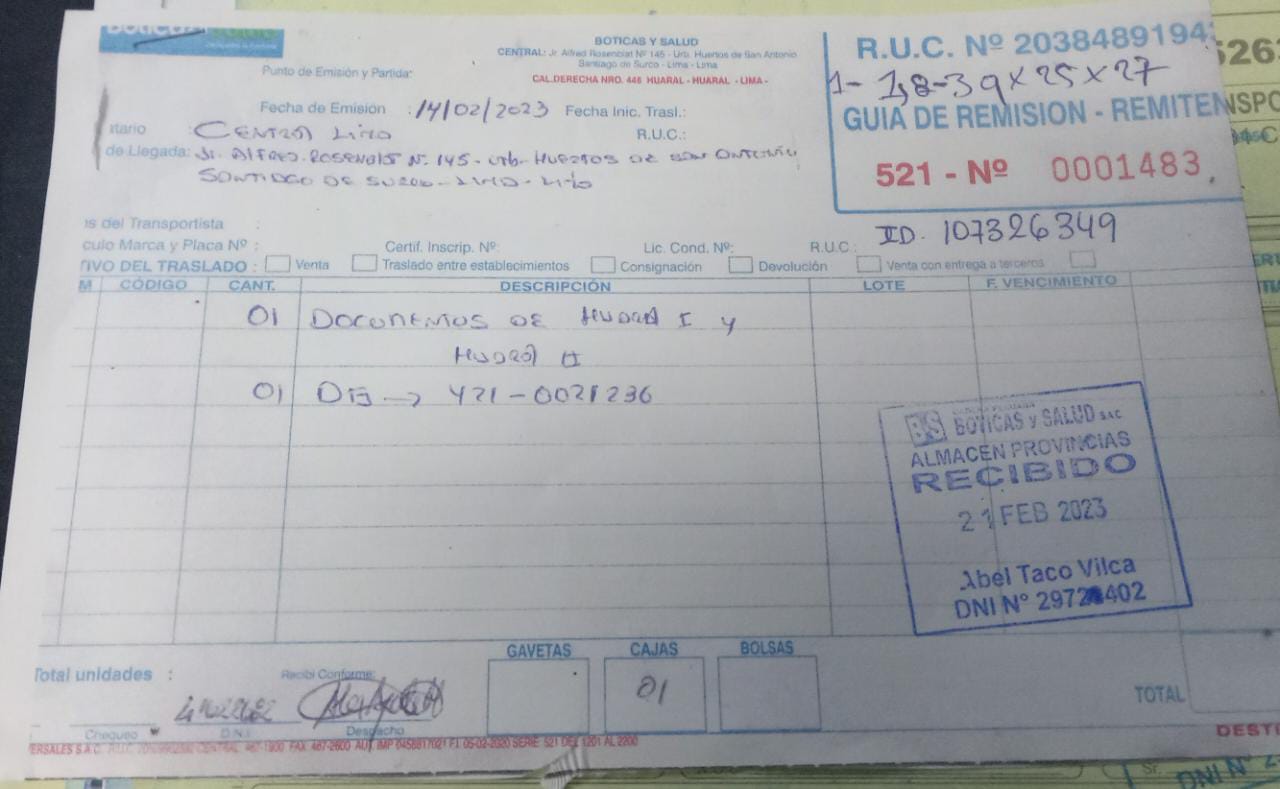 BOTICAS Y SALUD
CENTRAL: Jr. Alfred Rosenblat Nº 145 - Urb. Huertos de San Antonio
Santiago de Surco - Lima - Lima
CAL.DERECHA NRO. 446 HUARAL - HUARAL - LIMA -
R.U.C. Nº 2038489194
1- 1,8-39x25x27
GUIA DE REMISION - REMITEN
521 - Nº 0001483
Punto de Emisión y Partida:
Fecha de Emisión : 14/02/2023 Fecha Inic. Trasl.:
itario : CENTRAL LIMA R.U.C.:
de Llegada: Jr. ALFRED. ROSENBLAT N. 145 - Urb. HUERTOS DE SAN ANTONIO
SANTIAGO DE SURCO - LIMA - LIMA
ID. 107326349
s del Transportista :
culo Marca y Placa Nº : Certif. Inscrip. Nº: Lic. Cond. Nº: R.U.C:
TIVO DEL TRASLADO : Venta Traslado entre establecimientos Consignación Devolución Venta con entrega a terceros
M CÓDIGO CANT. DESCRIPCIÓN LOTE F. VENCIMIENTO
01 DOCUMENTOS DE HUARAL I y
HUARAL II
01 421-0021236
BS BOTICAS y SALUD SAC
ALMACEN PROVINCIAS
RECIBIDO
21 FEB 2023
Abel Taco Vilca
DNI Nº 402
GAVETAS CAJAS BOLSAS
Total unidades : Recibi Conforme:
01
TOTAL
Chequeo D.N.I. Despacho
ERSALES S.A.C. CENTRAL 467-1900 FAX 467-2600 AUT. IMP 0458817021 F.I. 05-02-2020 SERIE 521 DEL 1201 AL 2200
DESTI
DNI Nº